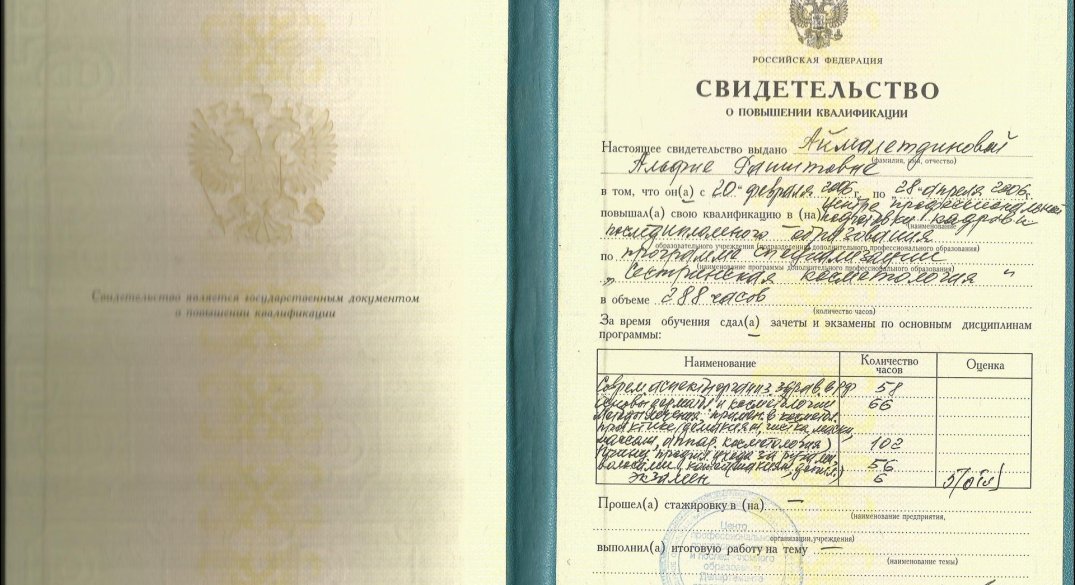 Свидетельство является государственным документом
о повышении квалификации
РОССИЙСКАЯ ФЕДЕРАЦИЯ
СВИДЕТЕЛЬСТВО
О ПОВЫШЕНИИ КВАЛИФИКАЦИИ
Настоящее свидетельство выдано Аймалетдиновой
(фамилия, имя, отчество)
Альфие Рашитовне
в том, что он(а) с 20 февраля 2006 г. по 28 апреля 2006г.
повышал(а) свою квалификацию в (на) Центре профессиональной
подготовки кадров и
(наименование
последипломного образования
образовательного учреждения (подразделения) дополнительного профессионального образования)
по программе специализации
(наименование программы дополнительного профессионального образования)
„Сестринская косметология"
в объеме 288 часов
(количество часов)
За время обучения сдал(а) зачеты и экзамены по основным дисциплинам
программы:
Наименование Количество часов Оценка
Соврем. аспекты организ. здрав. в РФ 58
основы дерматол. и косметологии 66
методы лечения, примен. в космет.
практике (демакияж, чистка, маски,
массаж, аппар. косметология) 102
волосами 56
экзамен 6 5
Прошел(а) стажировку в (на) —
(наименование предприятия,
организации, учреждения)
выполнил(а) итоговую работу на тему —
(наименование темы)
Центр
профессиональной
образования
Департамента